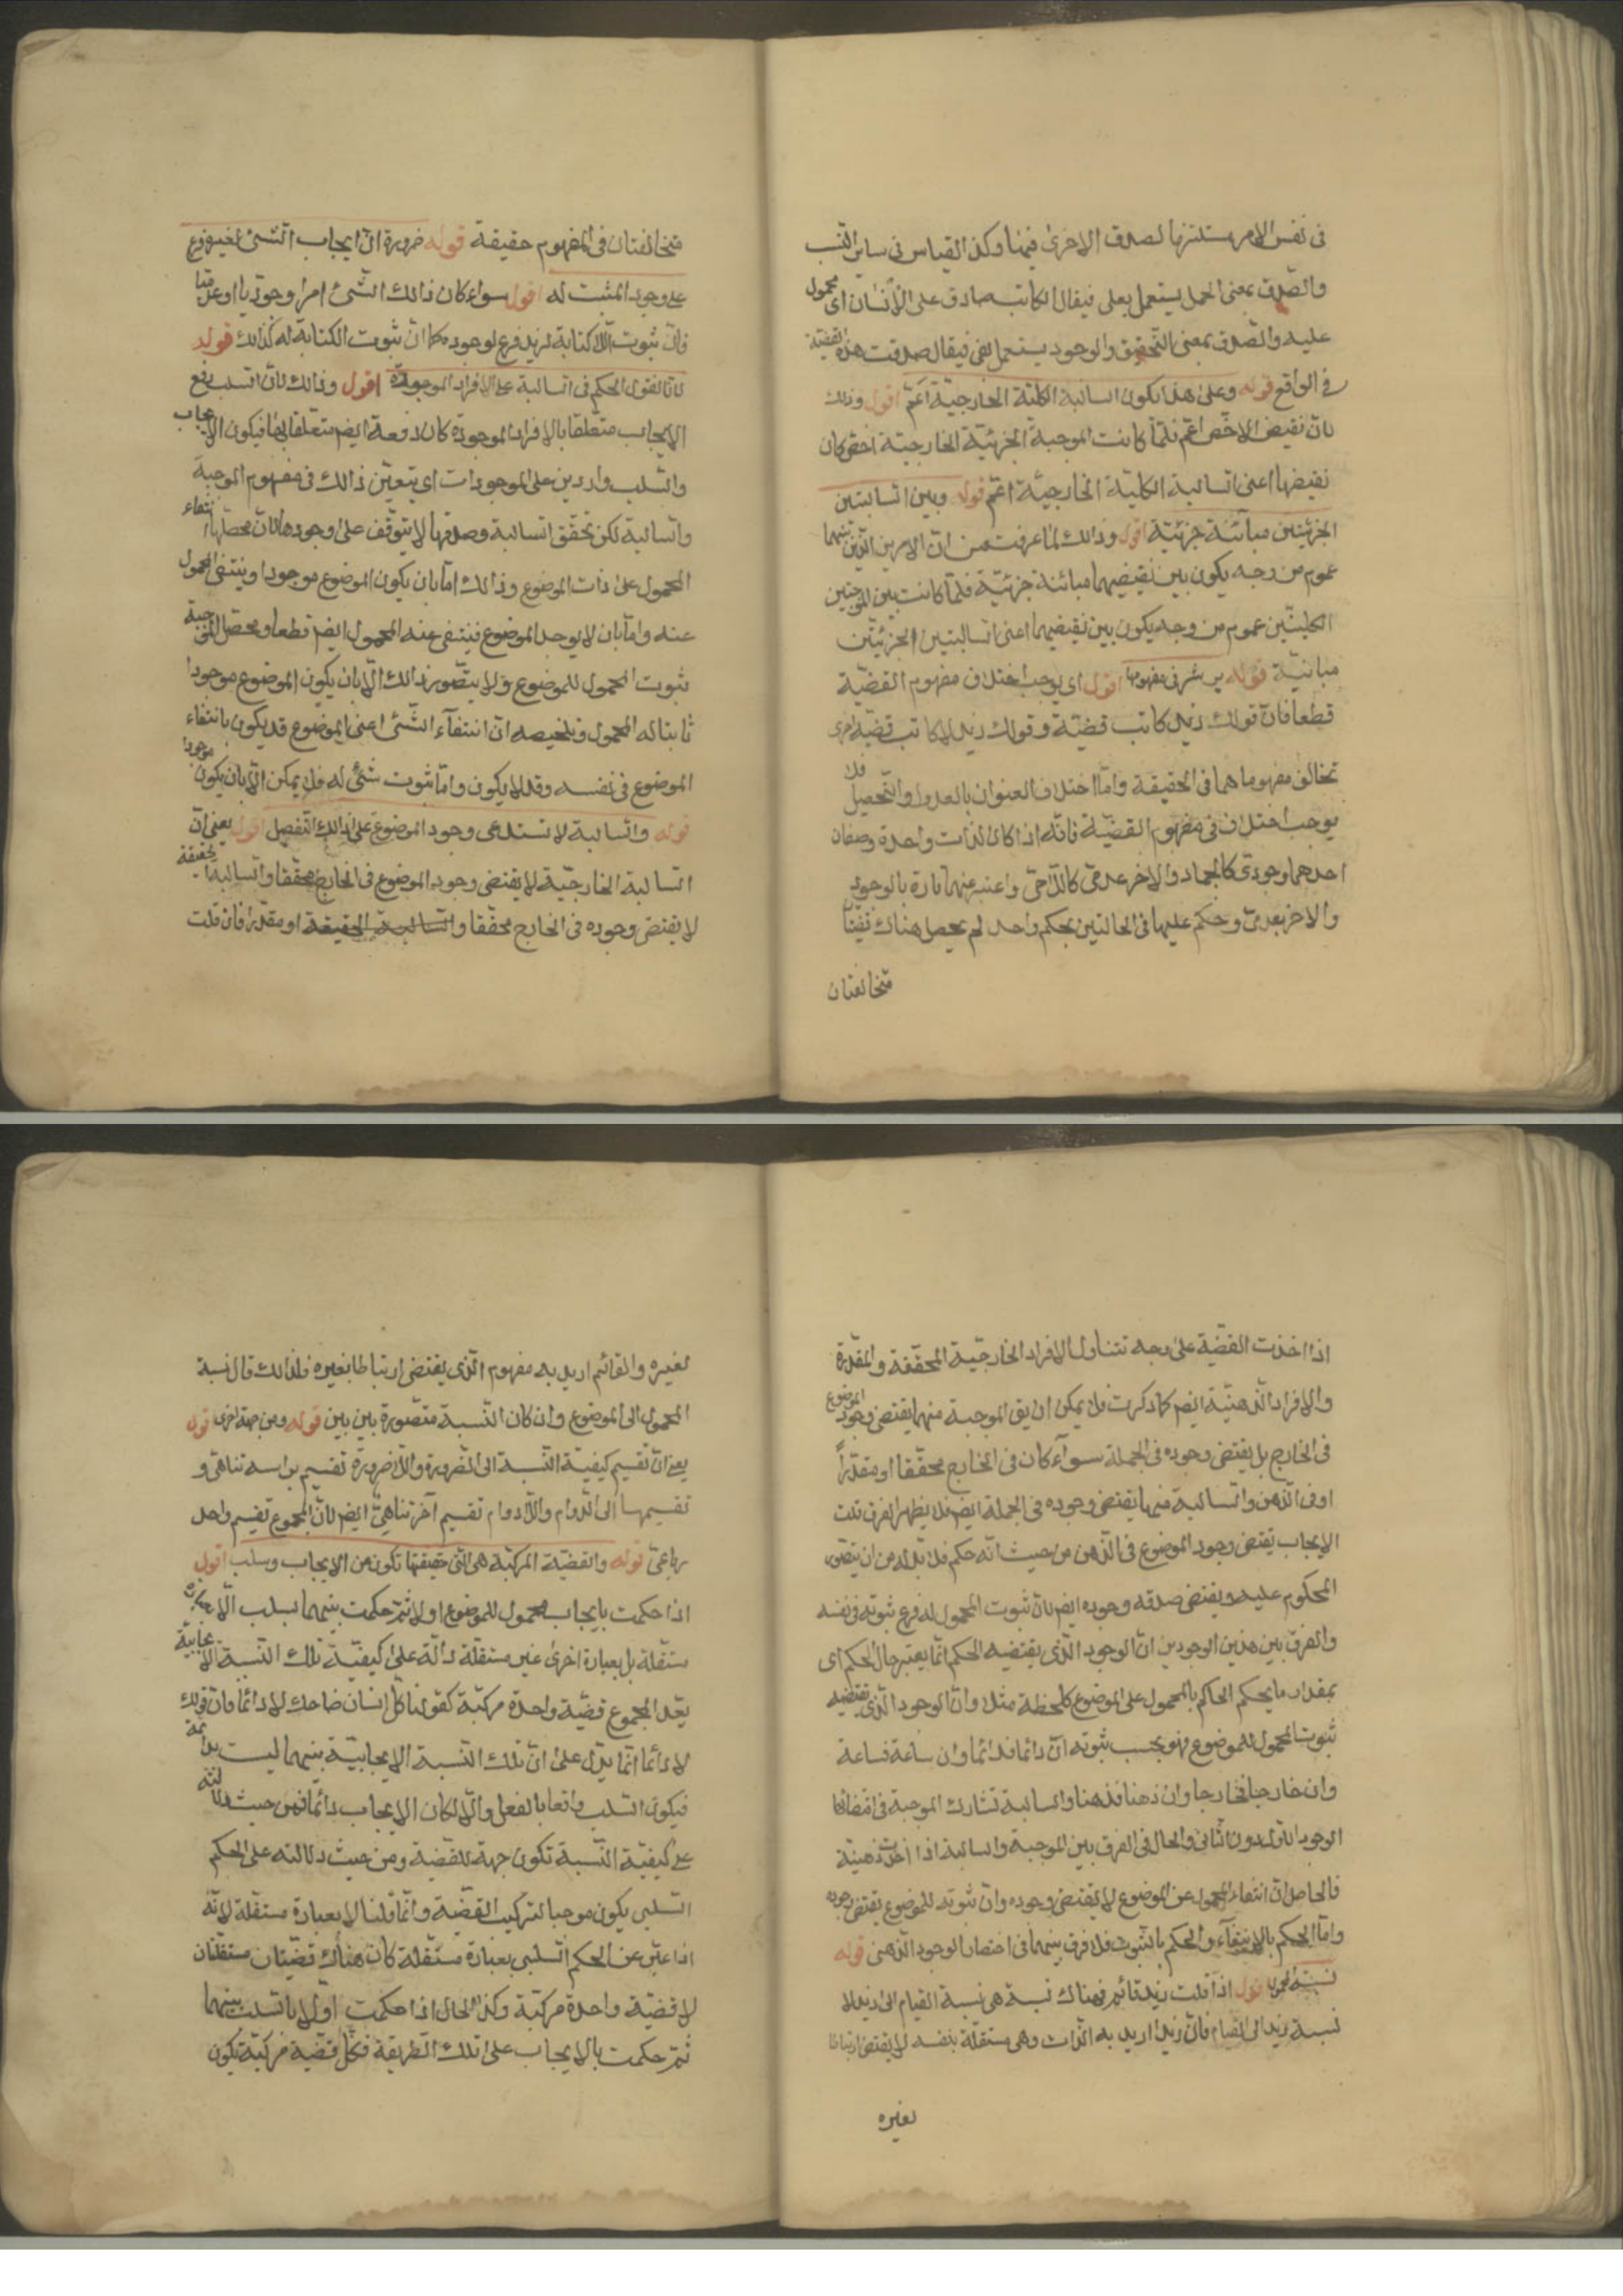 فى نفس الامر مستلزما لصدق الاخرى فيها وكذا القياس فى ساير النسب
والصدق بمعنى الحمل يستعمل بعلى فيقال الكاتب صادق على الانسان اى محمول
عليه والصدق بمعنى التحقيق والوجود يستعمل بفى فيقال صدقت هذه القضية
فى الواقع قوله وعلى هذا يكون السالبة الكلية الخارجية اعم اقول وذلك
لان نقيض الاخص اعم فلما كانت الموجبة الجزئية الخارجية اخص كان
نقيضها اعنى السالبة الكلية الخارجية اعم قوله وبين السالبتين
الجزئيتين مباينة جزئية اقول وذالك لما عرفت من ان الامرين الذين بينهما
عموم من وجه يكون بين نقيضيهما مباينة جزئية فلما كانت بين الموجبتين
الكليتين عموم من وجه يكون بين نقيضيهما اعنى السالبتين الجزئيتين
مباينة قوله يوثر فى مفهومها اقول اى يوجب اختلاف مفهوم القضية
قطعا فان قولك زيد كاتب قضية وقولك زيد لاكاتب قضية اخرى
تخالف مفهوماهما فى الحقيقة واما اختلاف العنوان بالعدول والتحصيل فلا
يوجب اختلاف فى مفهوم القضية فانه اذا كان لذات واحدة وصفان
احدهما وجودى كالجماد والاخر عدمى كاللاحى واعتبر عنها تارة بالوجود
والاخر بعدمى وحكم عليها فى الحالتين بحكم واحد لم يحصل هناك
متخالفتان
متخالفتان فى المفهوم حقيقة قوله ضرورة ان ايجاب الشئ لغيره فرع
على وجود المثبت له اقول سواء كان ذالك الشئ امرا وجوديا او عدميا
فان ثبوت اللاكتابة لزيد فرع لوجوده كما ان ثبوت الكتابة له كذالك قوله
لانا نقول الحكم فى السالبة على الافراد الموجودة اقول وذالك لان السلب رفع
الايجاب متعلقا بالافراد الموجودة كان رفعه ايضم متعلقا بها فيكون الايجاب
والسلب واردين على الموجودات اى يتعين ذالك فى مفهوم الموجبة
والسالبة لكن تحقق السالبة وصدقها لا يتوقف على وجودها لان محصلها انتفاء
المحمول على ذات الموضوع وذالك اما بان يكون الموضوع موجودا وينتفى المحمول
عنه واما بان لا يوجد الموضوع فينتفى عنه المحمول ايضم قطعا ومحصل الموجبة
ثبوت المحمول للموضوع ولا يتصور ذالك الا بان يكون الموضوع موجودا
ثابتا له المحمول وتلخيصه ان انتفاء الشئ اعنى الموضوع قد يكون بانتفاء
الموضوع فى نفسه وقد لا يكون واما ثبوت شئ له فلا يمكن الا بان يكون موجودا
قوله والسالبة لا تستدعى وجود الموضوع على ذالك التفصيل اقول يعنى ان
السالبة الخارجية لا يقتضى وجود الموضوع فى الخارج محققا والسالبة الحقيقة
لا يقتضى وجوده فى الخارج محققا والسالبة الحقيقة او مقدرا فان قلت
اذا اخذت القضية على وجه تتناول الافراد الخارجية المحققة والمقدرة
والافراد الذهنية ايضم كما ذكرت فلا يمكن ان يق الموجبة منها يقتضى وجود الموضوع
فى الخارج بل يقتضى وجوده فى الجملة سواء كان فى الخارج محققا او مقدراً
او فى الذهن والسالبة منها يقتضى وجوده فى الجملة ايضم فلا يظهر الفرق قلت
الايجاب يقتضى وجود الموضوع فى الذهن من حيث انه حكم فلا بد له من ان يتصور
المحكوم عليه ويقتضى صدقه وجوده ايضم لان ثبوت المحمول له فرع ثبوته فى نفسه
والفرق بين هذين الوجودين ان الوجود الذى يقتضيه الحكم انما يعتبر حال الحكم اى
بمقدار ما يحكم الحاكم بالمحمول على الموضوع كلحظة مثلا وان الوجود الذى يقتضيه
ثبوت المحمول للموضوع فهو بحسب ثبوته ان دائما فدائما وان ساعة فساعة
وان خارجا فخارجا وان ذهنا فذهنا والسالبة تشارك الموجبة فى اقتضائها
الوجود الاول دون الثانى والحال فى الفرق بين الموجبة والسالبة اذا اخذت ذهنية
فالحاصل ان انتفاء المحمول عن الموضوع لا يقتضى وجوده وان ثبوته للموضوع يقتضى وجوده
واما الحكم بالانتفاء والحكم بالثبوت فلا فرق بينهما فى اقتضاء الوجود الذهنى قوله
نسبة المحمول اقول اذا قلت زيد قائم فهناك نسبة هى نسبة القيام الى زيد لا
نسبة زيد الى القيام فان زيدا اريد به الذات وهى مستقلة بنفسه لا يقتضى ارتباطا
لغيره
لغيره والقائم اريد به مفهوم الذى يقتضى ارتباطا بغيره فلذالك قال نسبة
المحمول الى الموضوع وان كان النسبة متصورة بين بين قوله ومن جهة اخرى اقول
يعنى ان تقسيم كيفية النسبة الى الضرورة واللاضرورة تقسيم براسه ثنائى و
تقسيمها الى الدوام واللادوام تقسيم آخر ثنائى ايضم لان المجموع تقسيم واحد
رباعى قوله والقضية المركبة هى التى حقيقتها تكون من الايجاب وسلب اقول
اذا حكمت بايجاب محمول للموضوع اولا ثم حكمت بينهما بسلب لا بعبارة
مستقلة بل بعبارة اخرى غير مستقلة دالة على كيفية تلك النسبة الايجابية
يعد المجموع قضية واحدة مركبة كقولنا كل انسان ضاحك لا دائما فان قولك
لا دائما انما يدل على ان تلك النسبة الايجابية بينهما ليست بدائمة
فيكون السلب واقعا بالفعل والا لكان الايجاب دائما فمن حيث دلالته
على كيفية النسبة تكون جهة للقضية ومن حيث دلالته على الحكم
السلبى يكون موجبا لتركيب القضية وانما قلنا لا بعبارة مستقلة لانه
اذا عبر عن الحكم السلبى بعبارة مستقلة كان هناك قضيتان مستقلتان
لا قضية واحدة مركبة وكذا الحال اذا حكمت اولا بالسلب بينهما
ثم حكمت بالايجاب على تلك الطريقة فكل قضية مركبة يكون